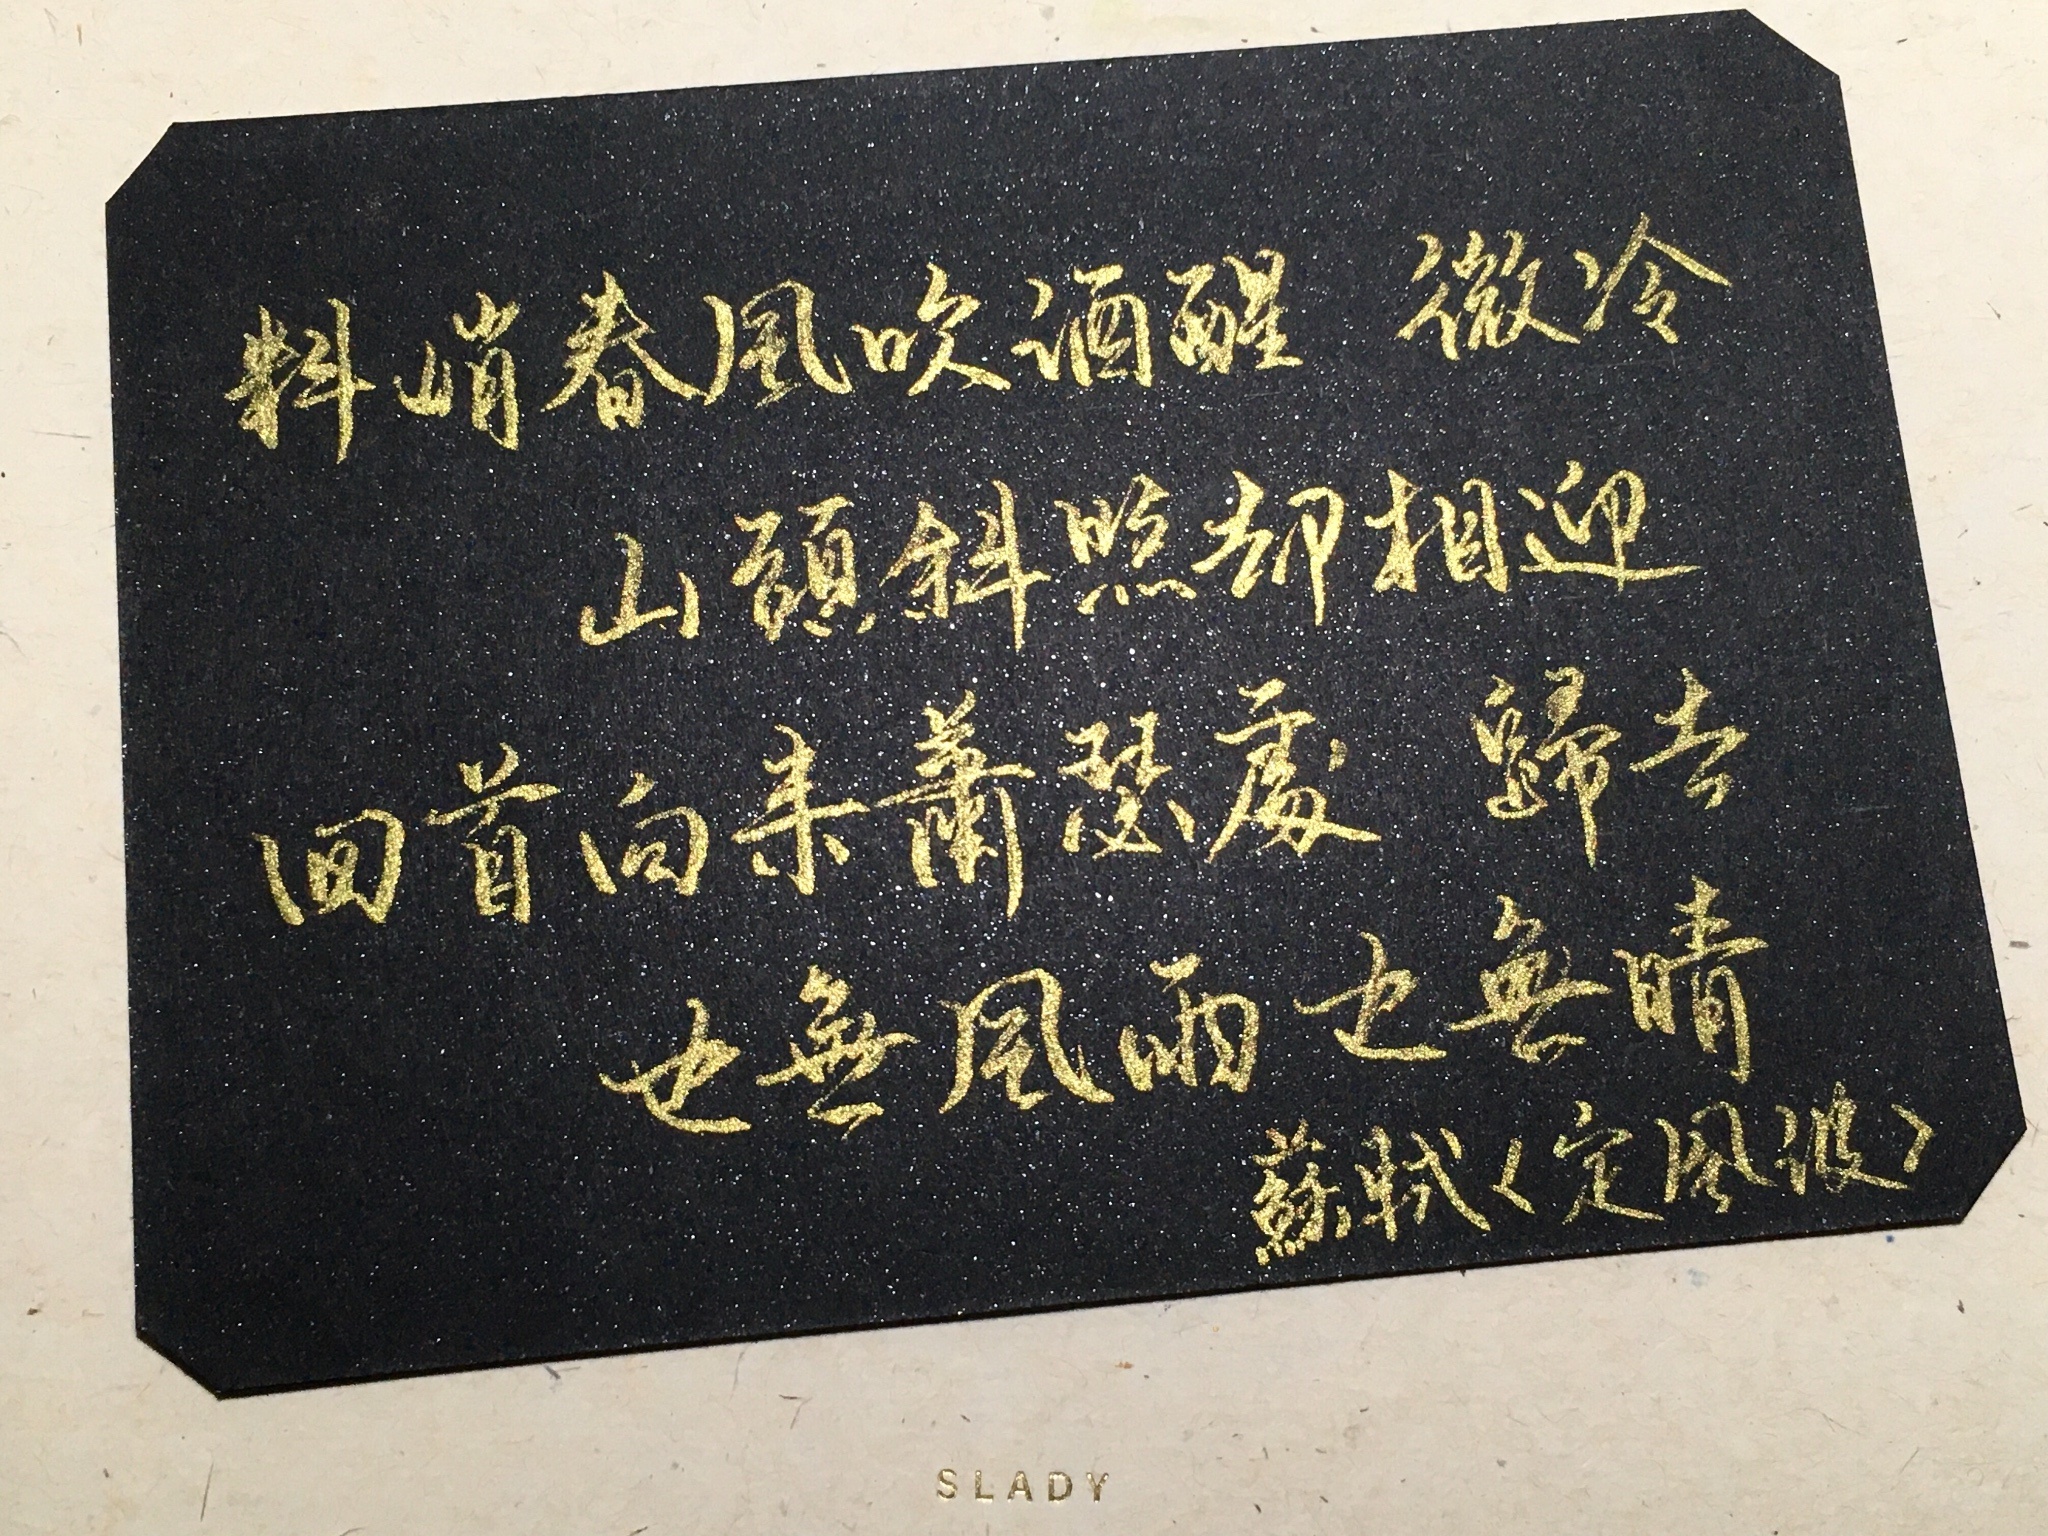 料峭春風吹酒醒 微冷
山頭斜照却相迎
回首向来蕭瑟處 歸去
也無風雨也無晴
蘇軾〈定風波〉
SLADY